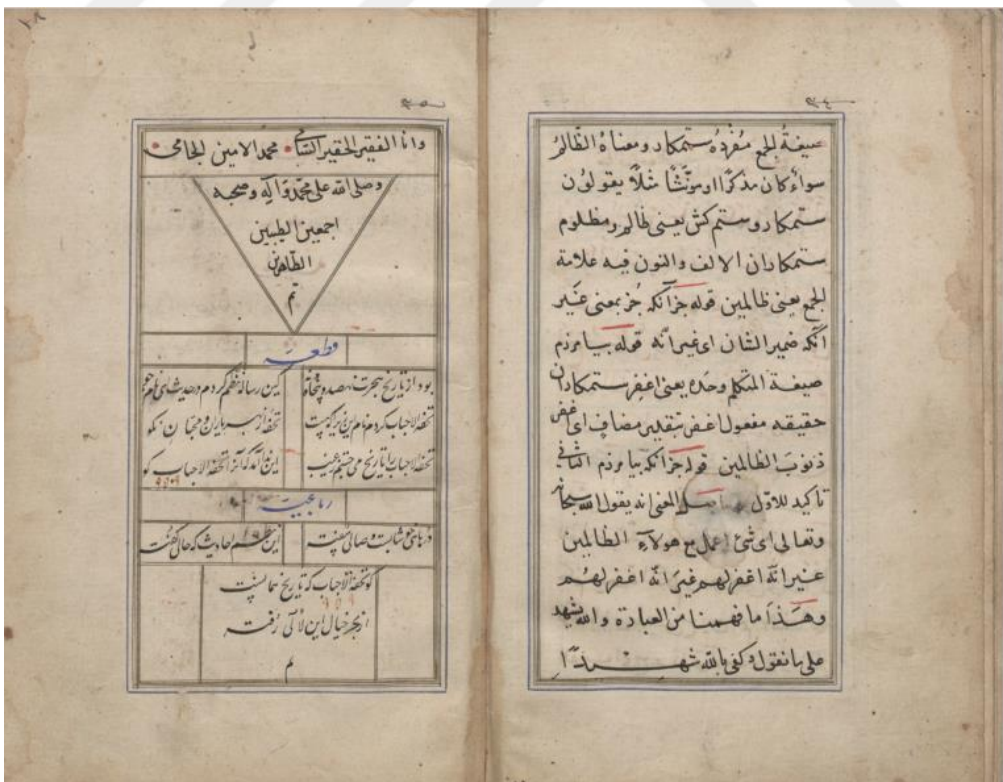 صيغةُ الجمع مُفْردُهُ ستمكار ومعناهُ الظّالمُ
سواءٌ كان مذكّرًا او مؤنّثًا مثلًا يقولوُن
ستمكار وستم كش يعنى ظالم ومظلوم
ستمكاران الالف والنون فيه علامة
الجمع يعنى ظالمين قوله جزآنكه جُز بمعنى غَير
آنكه ضمير الشان اى غير انّه قوله بيامرزم
صيغة المتكلّم وحدَه يعنى اغفر ستمكاران
حقيقه مفعول اغفر بتقدير مضاف اى اغفر
ذنوبَ الظالمين قوله جزآنكه بيامرزم الثانى
تاكيد للاوّل المعنى انه يقول الله سبحانه
وتعالى اىّ شئ اعمل مع هولاءِ الظالمين
غير انّه اغفر لهم غيرَ انّه اغفر لهُم
وهَذَا ما فهمنا من العبارة والله يشهد
على ما نقول وكفى بالله شهيدًا
وانا الفقير الحقير محمد الامين الجامى
وصلى الله على محمّد وآله وصحبه
اجمعين الطيبين
الطّاهرين
تم
قطعه
بود از تاريخ هجرت نهصد و پنجاه
كين رساله نظم كردم در حديث
تحفة الاحباب كردم نام اين
تحفه از بهر ياران و محبّان نكو
تحفة الاحباب را تاريخ مى جستم ز غيب
اين ندا آمد كه آنرا تحفة الاحباب كو
رباعيه
اين نظم احاديث كه حالى گفت
كو تحفة الاحباب كه تاريخ
۹۵۹
از بحر خيال اين لآلى